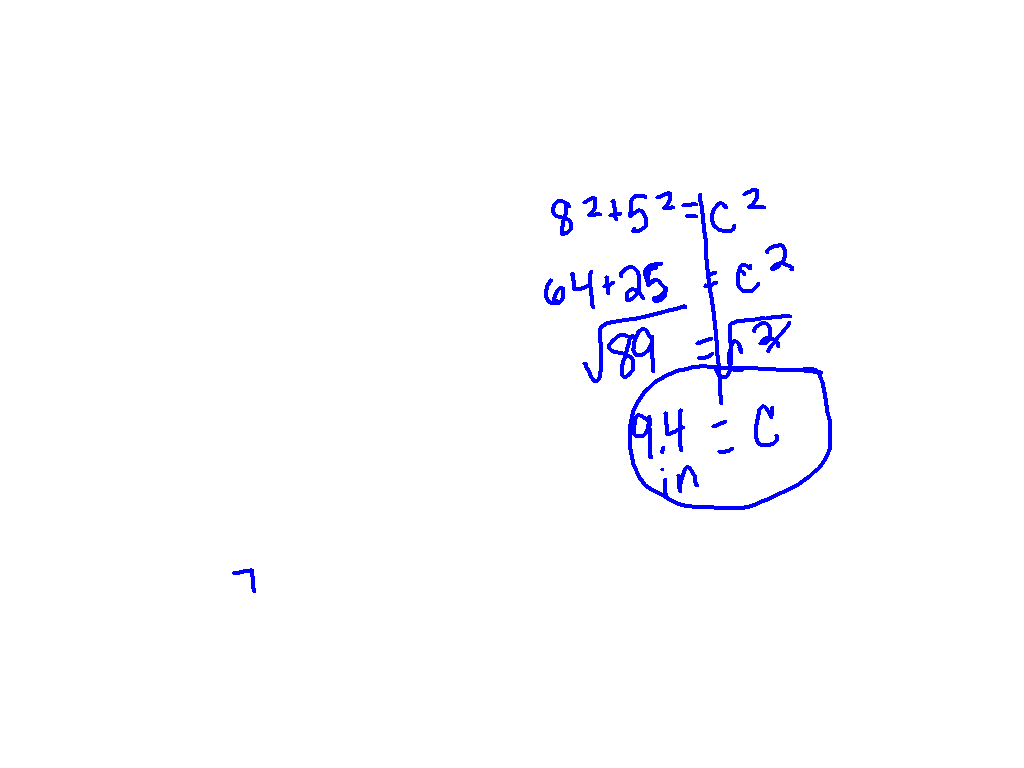 8²+5²=C²
64+25=C²
√89=√n²
9.4=C
in